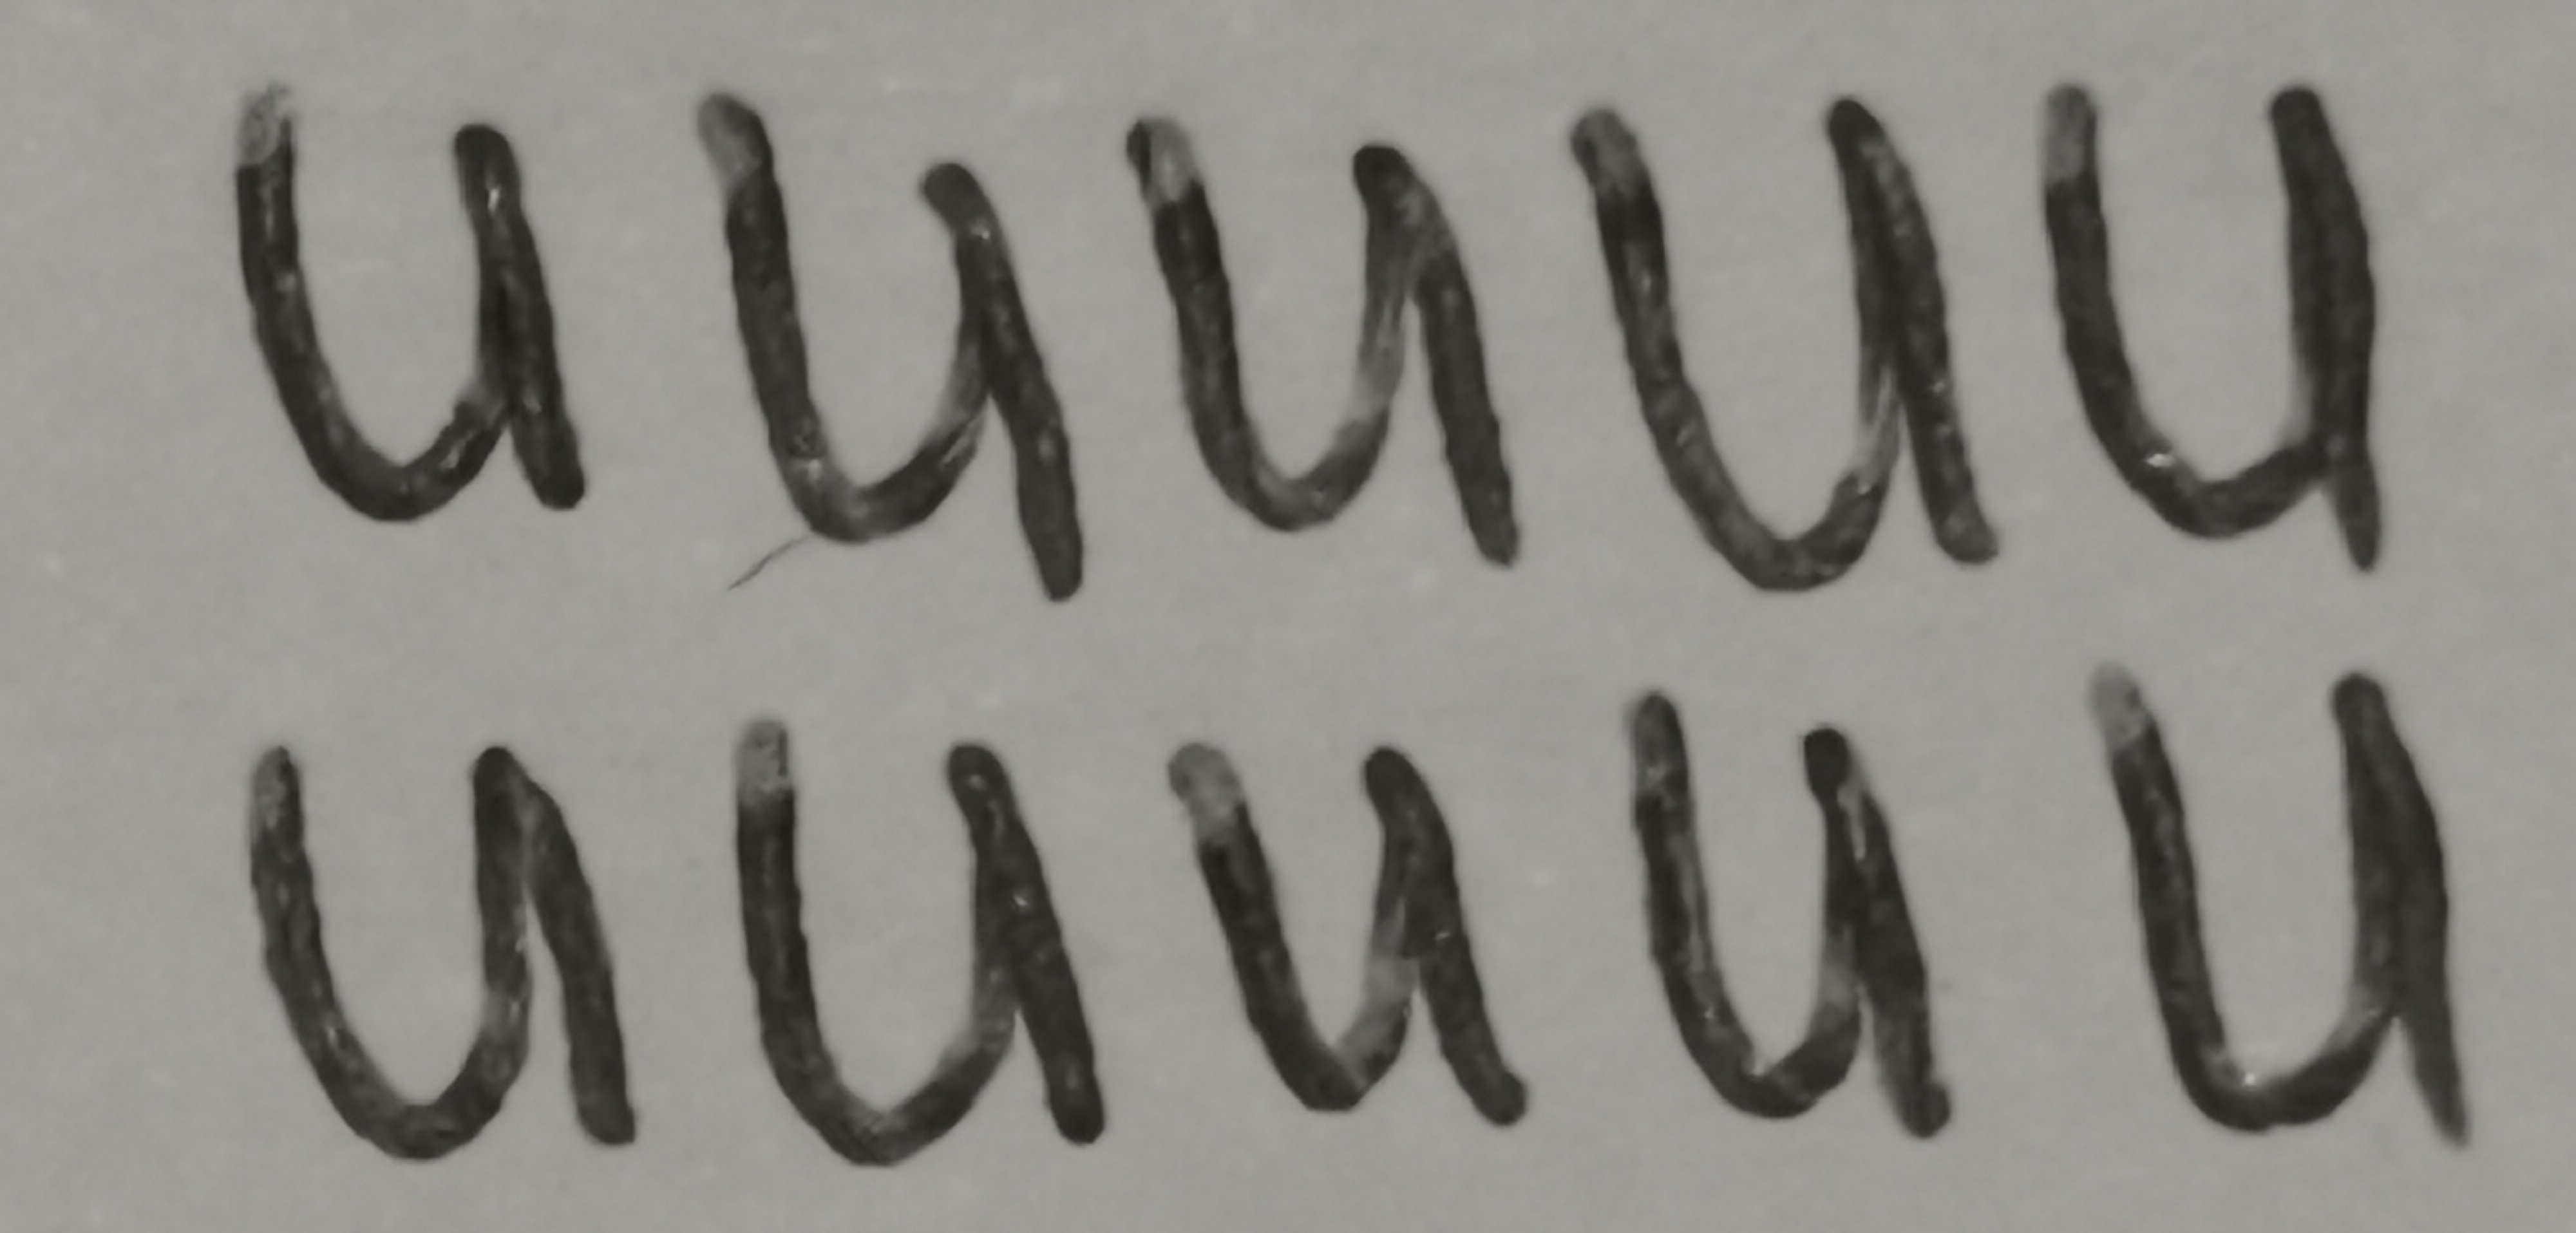 u u u u u
u u u u u